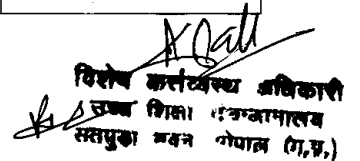 विशेष कर्त्तव्यस्थ अधिकारी
उच्च शिक्षा
सतपुड़ा भवन भोपाल (म.प्र.)